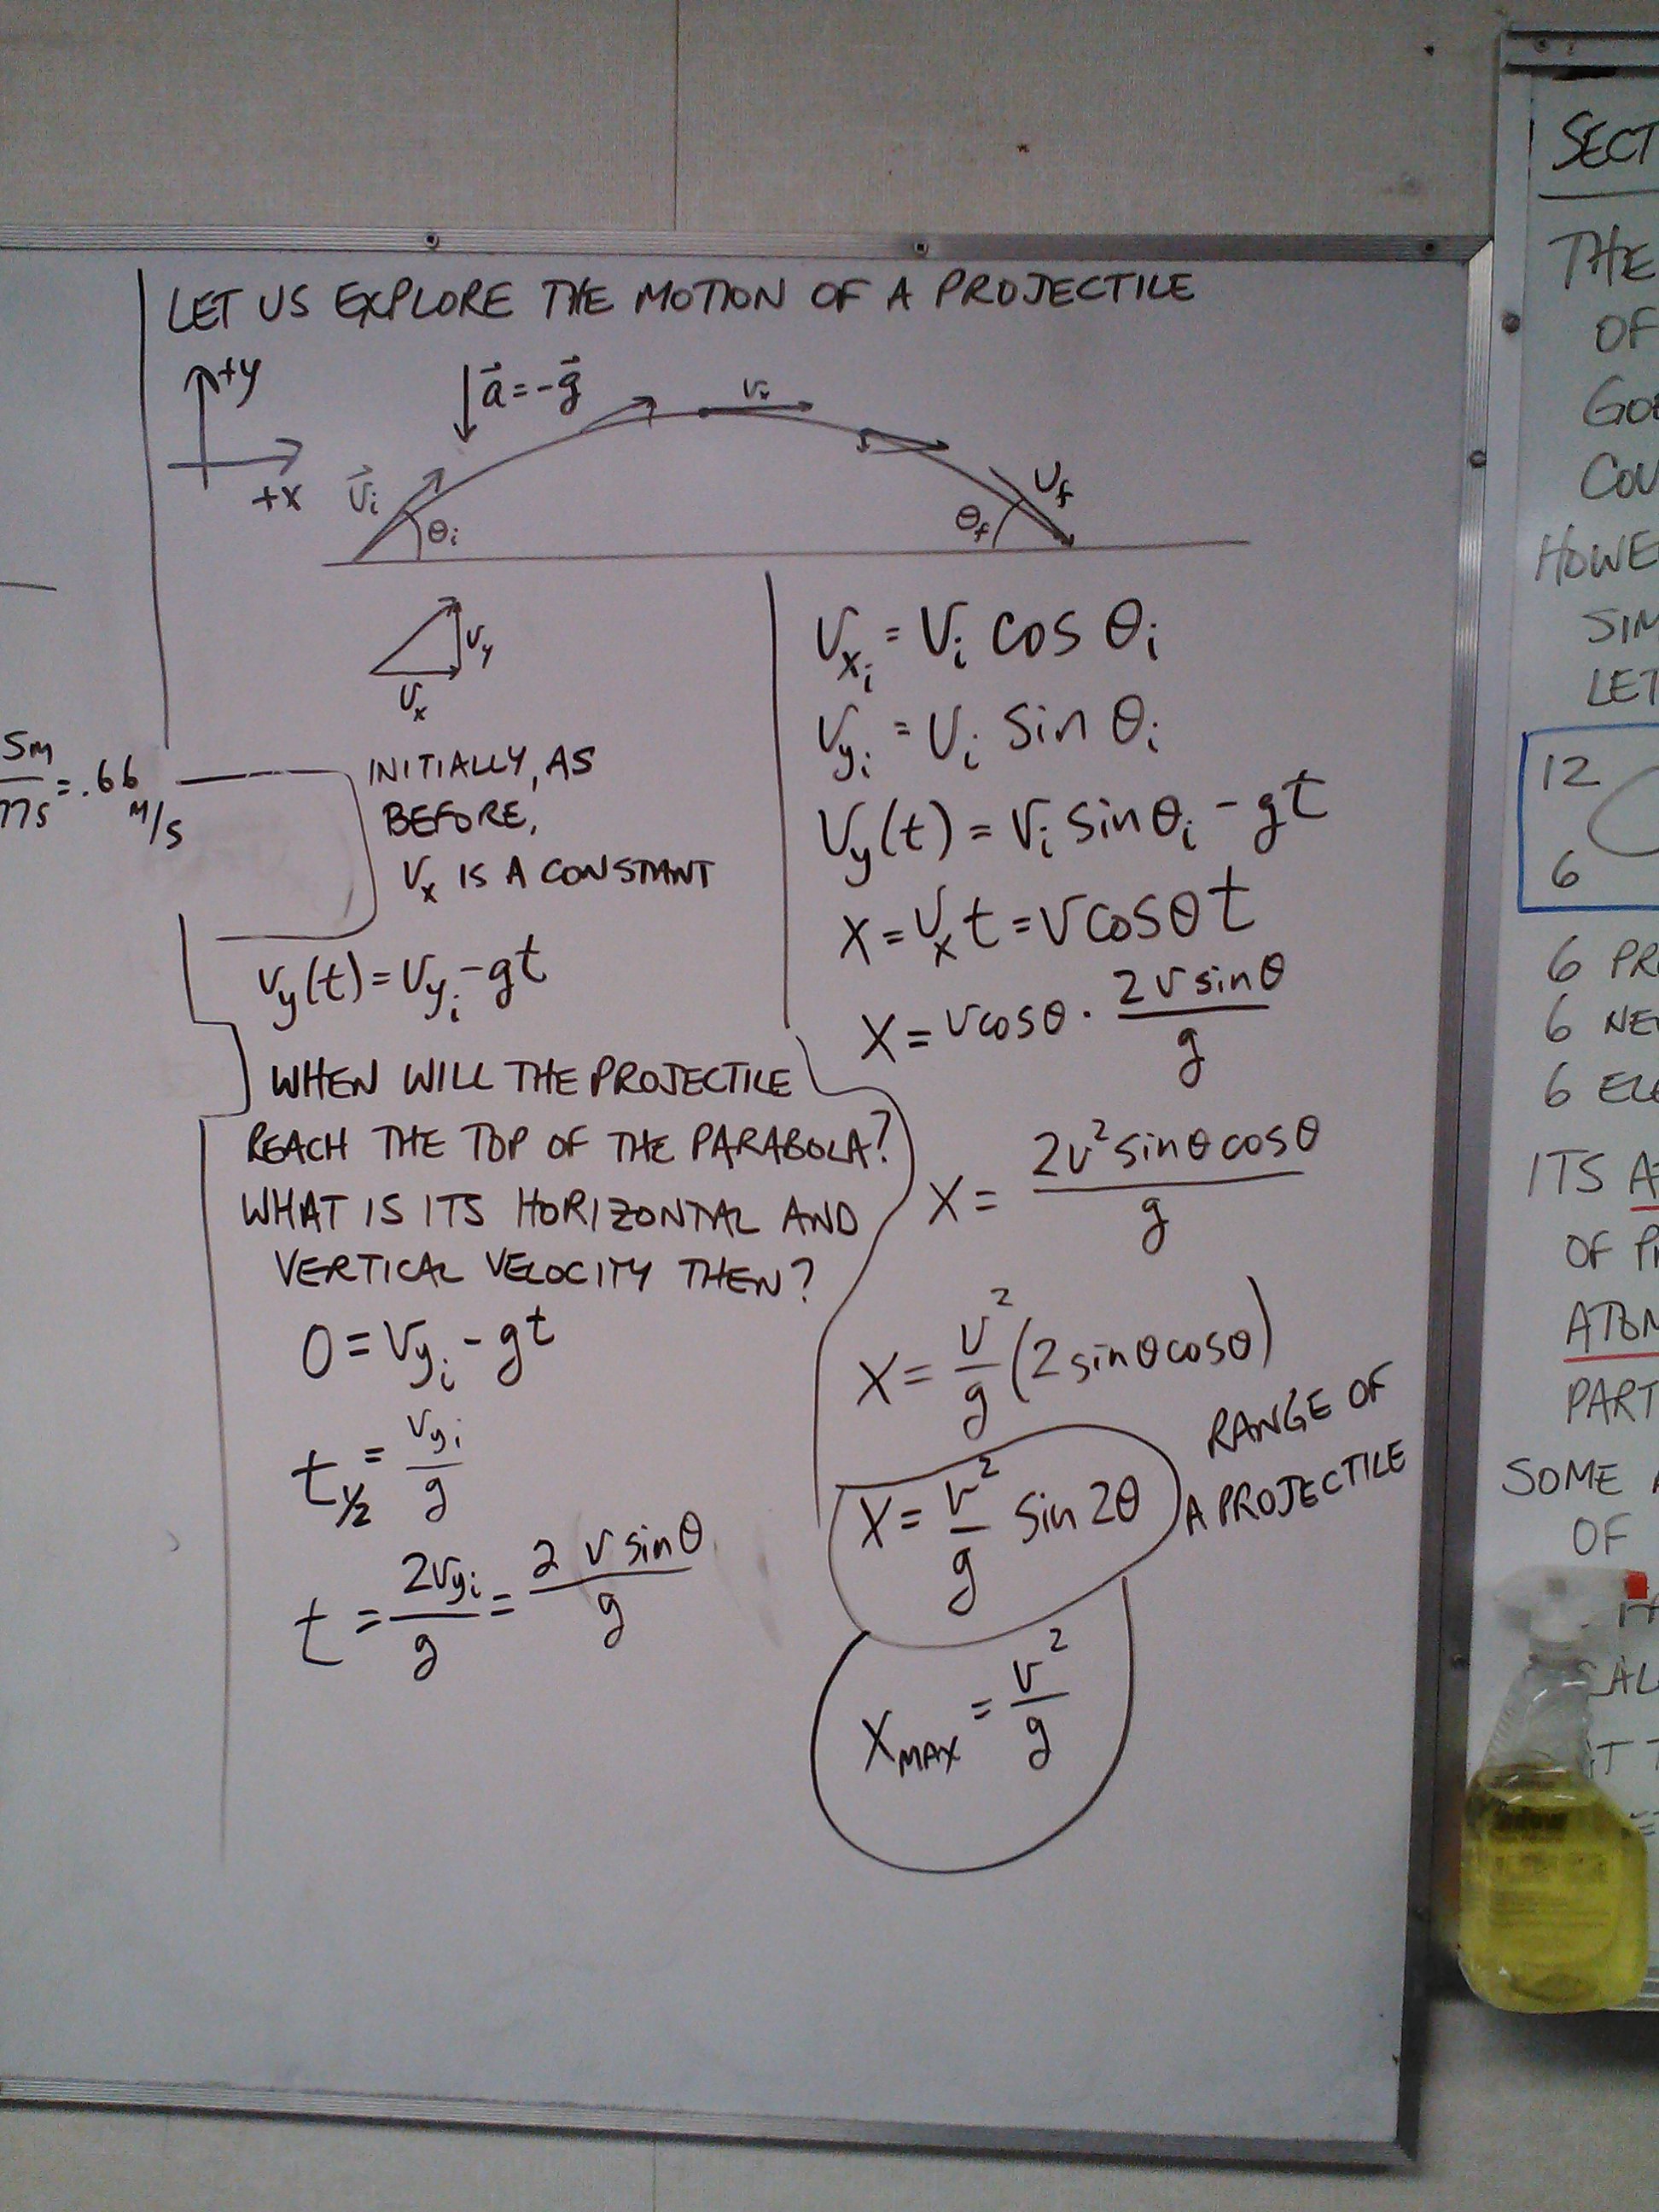 LET US EXPLORE THE MOTION OF A PROJECTILE
+y
+x
a⃗ = -g⃗
v⃗ᵢ
θᵢ
vₓ
v_f
θ_f
v_y
vₓ
INITIALLY, AS
BEFORE,
vₓ IS A CONSTANT
v_y(t) = v_yᵢ - gt
WHEN WILL THE PROJECTILE
REACH THE TOP OF THE PARABOLA?
WHAT IS ITS HORIZONTAL AND
VERTICAL VELOCITY THEN?
0 = v_yᵢ - gt
t_½ = v_yᵢ / g
t = 2v_yᵢ / g = 2 v sin θ / g
v_xᵢ = vᵢ cos θᵢ
v_yᵢ = vᵢ sin θᵢ
v_y(t) = vᵢ sin θᵢ - gt
x = vₓ t = v cos θ t
x = v cos θ · 2 v sin θ / g
x = 2v² sin θ cos θ / g
x = v²/g (2 sin θ cos θ)
x = v²/g sin 2θ
RANGE OF
A PROJECTILE
x_MAX = v²/g
5m
77s = .66
M/S
SECT
THE
OF
COU
HOWE
SIM
LET
12
6
6 PR
6 NE
6 ELE
ITS A
OF P
ATOM
PART
SOME
OF